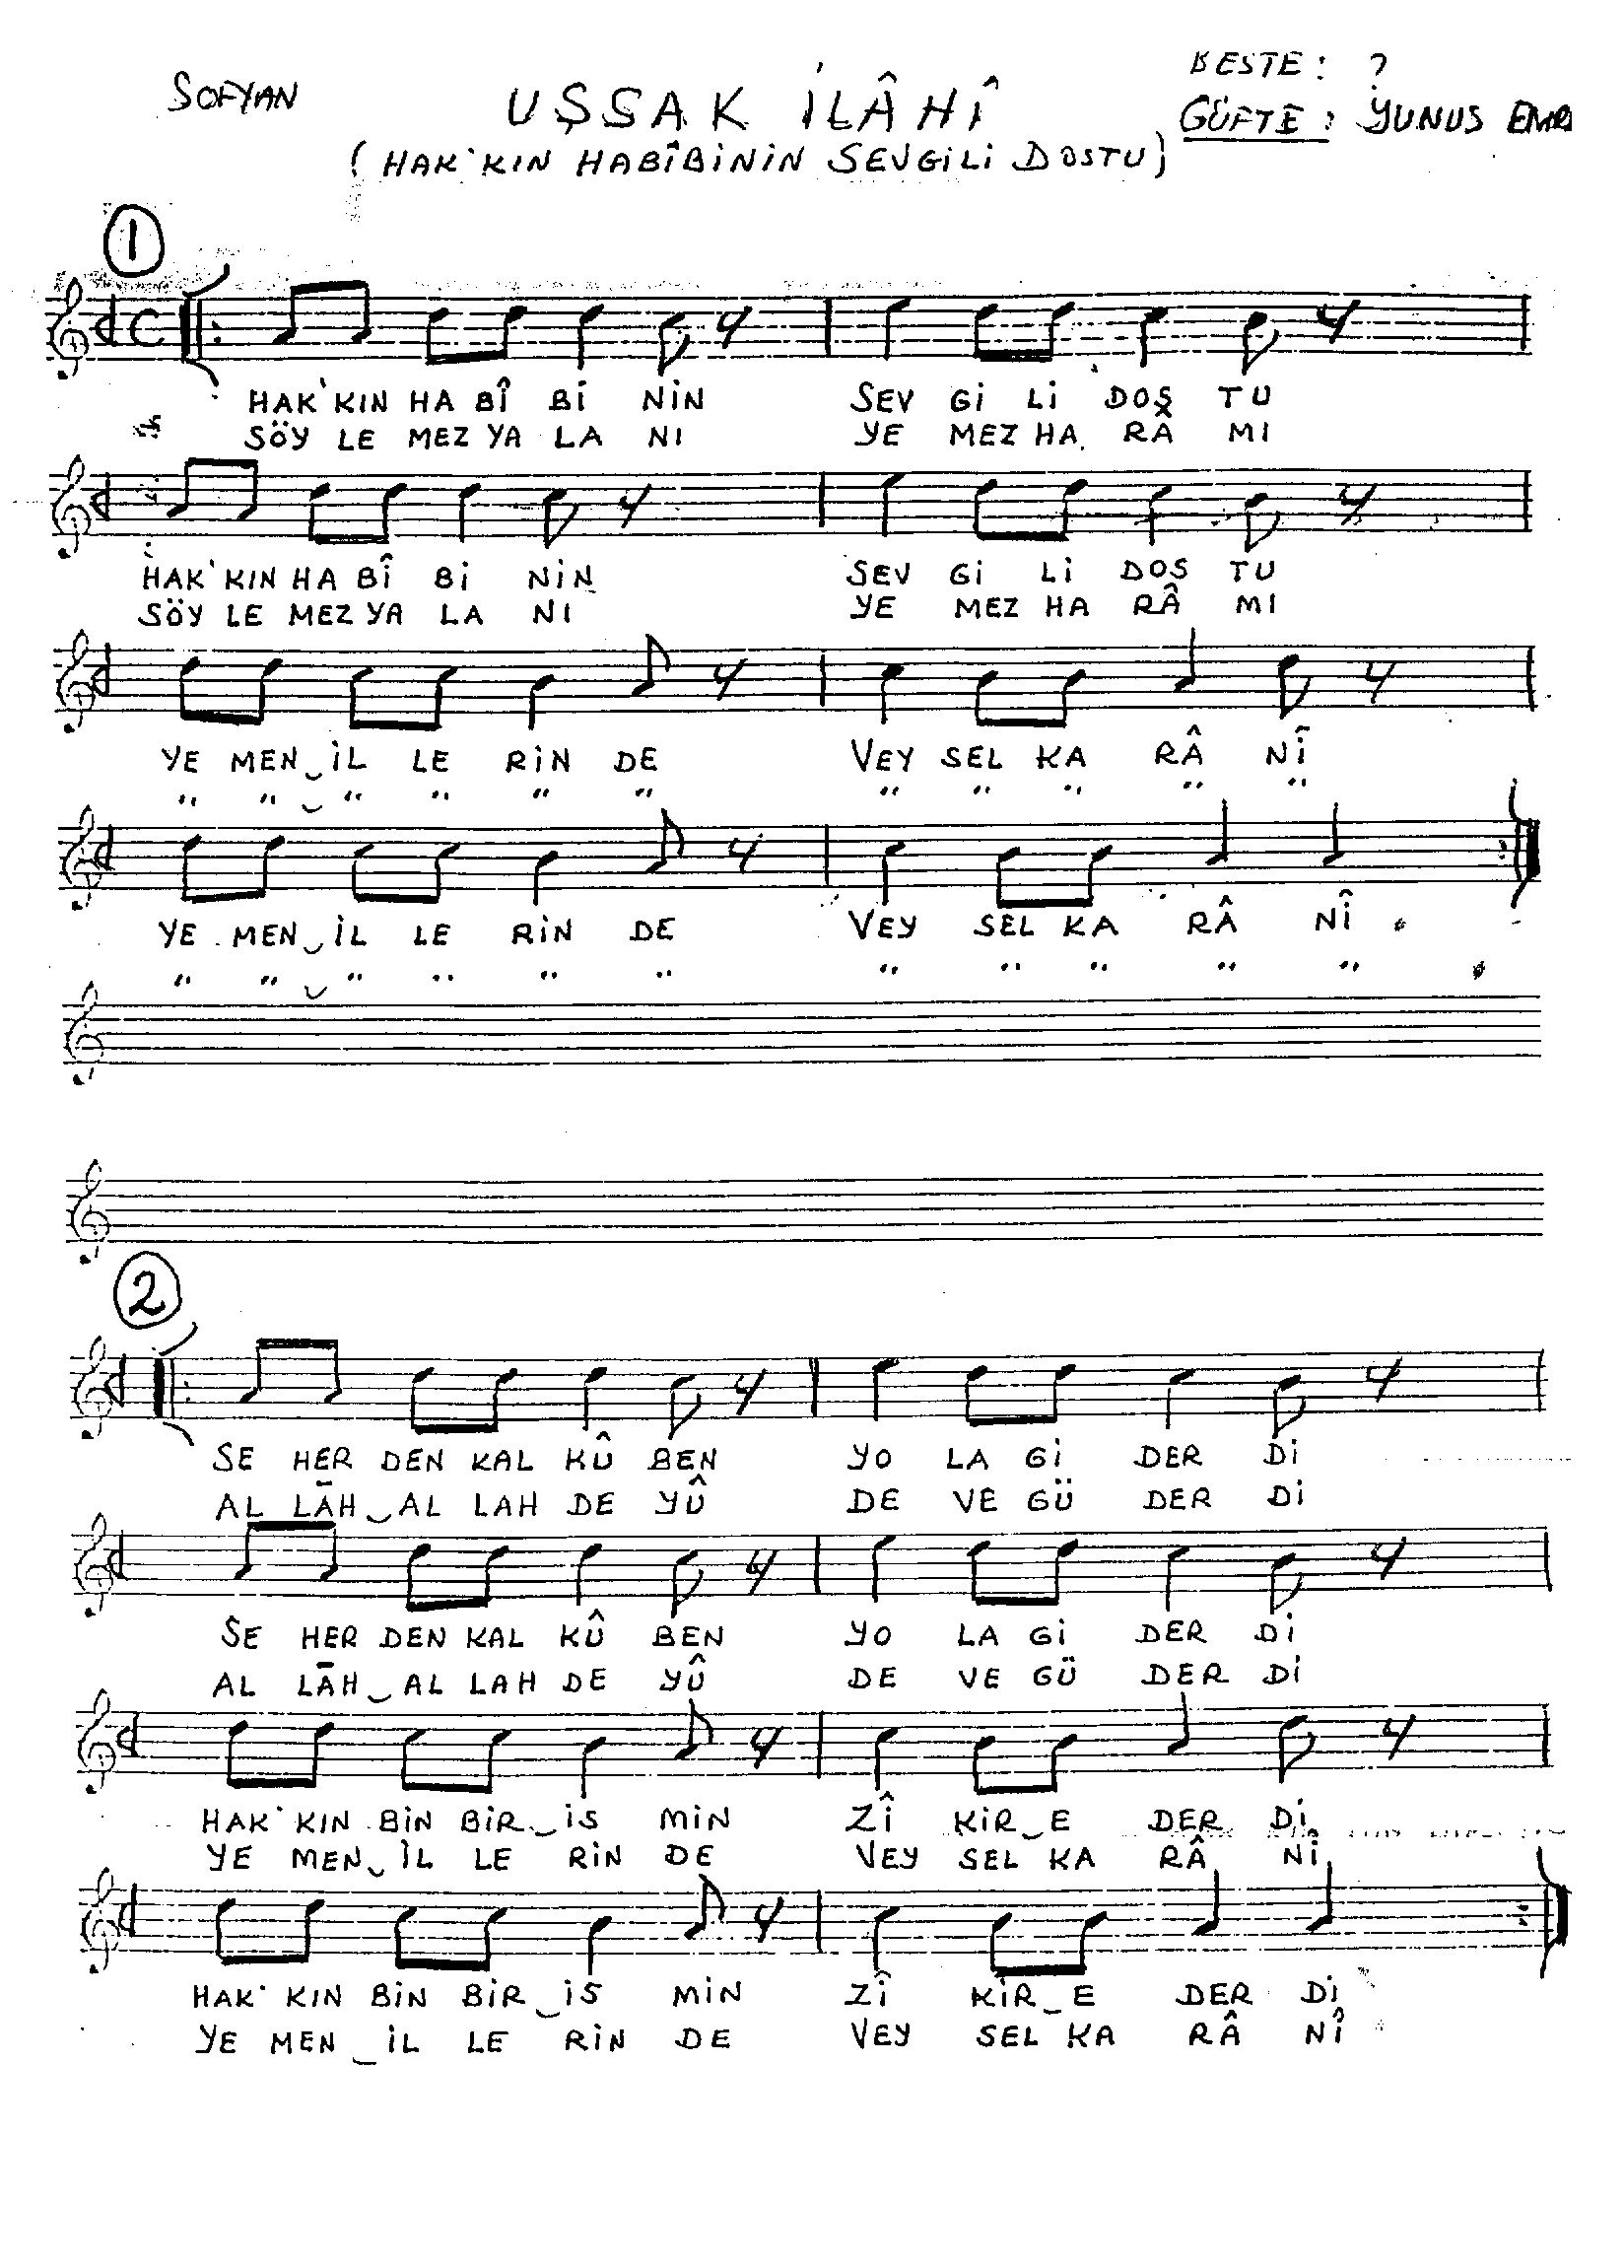 SOFYAN
UŞŞAK İLÂHÎ
BESTE: ?
GÜFTE: YUNUS EMR
(HAK'KIN HABÎBİNİN SEVGİLİ DOSTU)
1
HAK' KIN HA BÎ Bİ NİN SEV Gİ Lİ DOS TU
SÖY LE MEZ YA LA NI YE MEZ HA RÂ MI
HAK' KIN HA BÎ Bİ NİN SEV Gİ Lİ DOS TU
SÖY LE MEZ YA LA NI YE MEZ HA RÂ MI
YE MEN‿İL LE RİN DE VEY SEL KA RÂ NÎ
" " ‿ " " " " " " " " "
YE MEN‿İL LE RİN DE VEY SEL KA RÂ NÎ
" " ‿ " " " " " " " " "
2
SE HER DEN KAL KÛ BEN YO LA Gİ DER Dİ
AL LĀH‿AL LAH DE YÛ DE VE GÜ DER Dİ
SE HER DEN KAL KÛ BEN YO LA Gİ DER Dİ
AL LĀH‿AL LAH DE YÛ DE VE GÜ DER Dİ
HAK' KIN BİN BİR‿İS MİN ZÎ KİR‿E DER Dİ
YE MEN‿İL LE RİN DE VEY SEL KA RÂ NÎ
HAK' KIN BİN BİR‿İS MİN ZÎ KİR‿E DER Dİ
YE MEN‿İL LE RİN DE VEY SEL KA RÂ NÎ